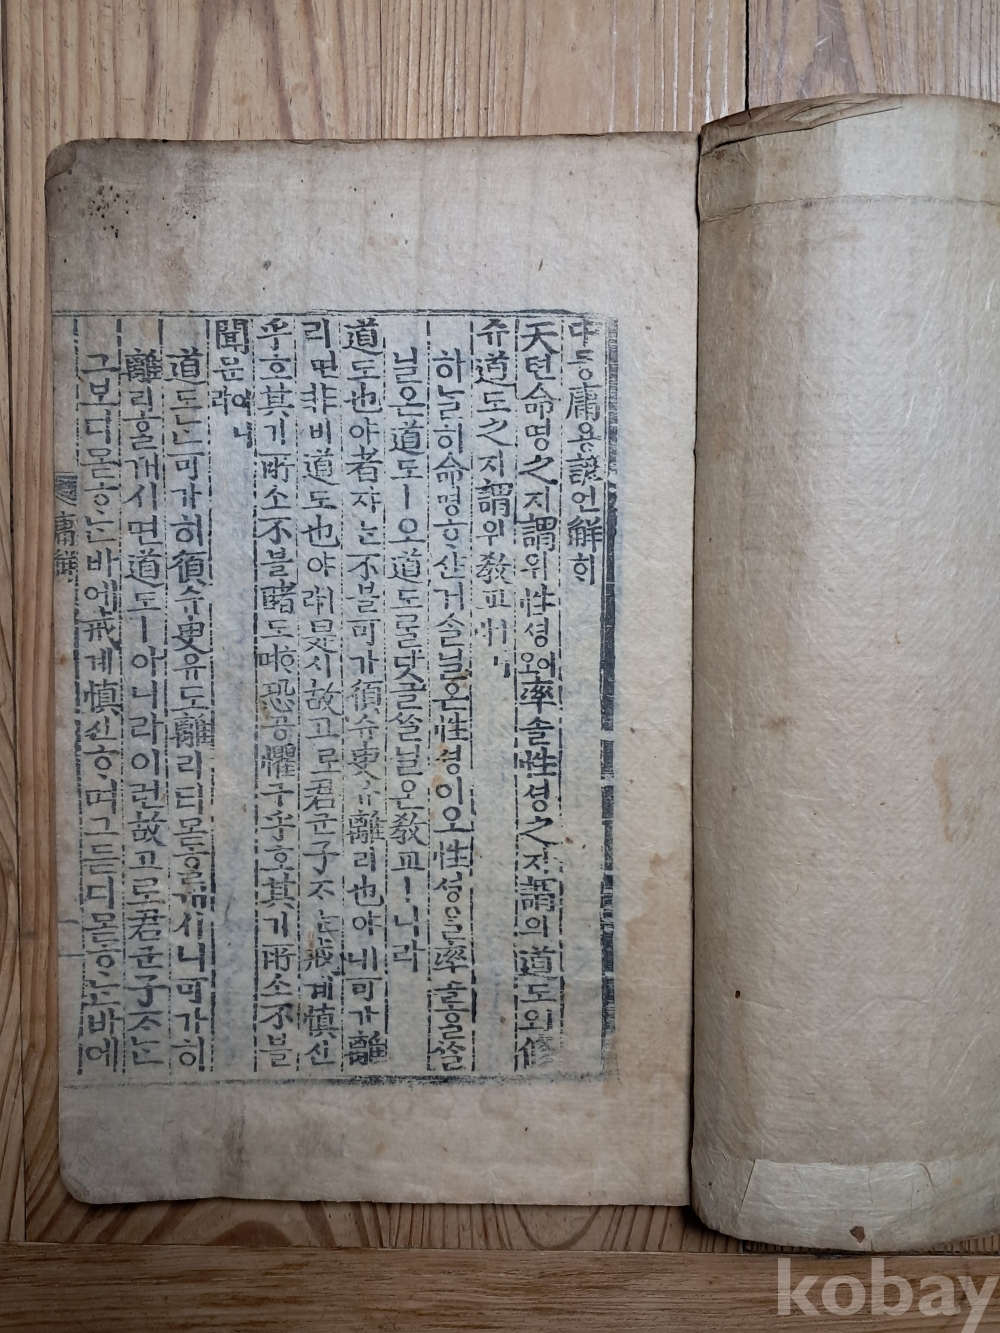 中듕庸용諺언觧ᄒᆡ
天텬命명之지謂위性셩이오率솔性셩之지謂위道도ㅣ오修
슈道도之지謂위敎교ㅣ니
하ᄂᆞᆯ히命명ᄒᆞ산거ᄉᆞᆯ닐온性셩이오性셩을率솔홀ᄭᅥᆯ
닐온道도ㅣ오道도ᄅᆞᆯ닷글ᄭᅥᆯ닐온敎교ㅣ니라
道도也야者쟈ᄂᆞᆫ不블可가須슈臾유離리也야ㅣ니可가離
리면非비道도也야ㅣ라是시故고로君군子ᄌᆞᄂᆞᆫ戒계愼신
乎호其기所소不블睹도ᄒᆞ며恐공懼구乎호其기所소不블
聞문이니라
道도ᄂᆞᆫ可가히須슈臾유도離리티몯ᄒᆞᆯ꺼시니可가히
離리홀꺼시면道도ㅣ아니라이런故고로君군子ᄌᆞᄂᆞᆫ
그보디몯ᄒᆞᄂᆞᆫ바에戒계愼신ᄒᆞ며그듣디몯ᄒᆞᄂᆞᆫ바에
庸觧
kobay